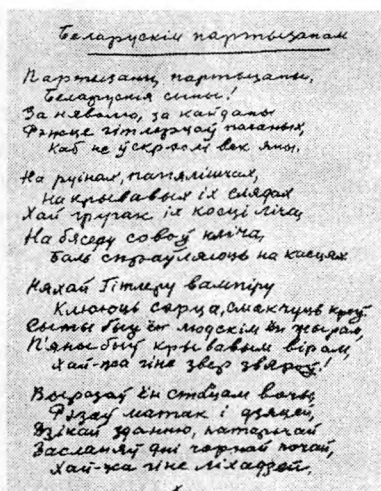 Беларускім партызанам
Партызаны, партызаны,
Беларускія сыны!
За няволю, за кайданы
Рэжце гітлерцаў паганых,
Каб не ўскрэслі век яны.
На руінах, папялішчах,
на крывавых іх слядах
Хай груган іх косці ліча,
На бяседу совоў кліча,
Баль спраўляюць на касцях
Няхай Гітлеру вампіру
Клююць сэрца, смокчуць кроў.
Сыты быў ён людскім жырам,
П'яны быў крывавым вірам,
Хай-жа гіне звер звяроў!
Выразаў ён вочы,
Рэзаў матак і дзяцей,
Дзікай
Засланяў дні чорнай ночай,
Хай-жа гіне ліхадзей.